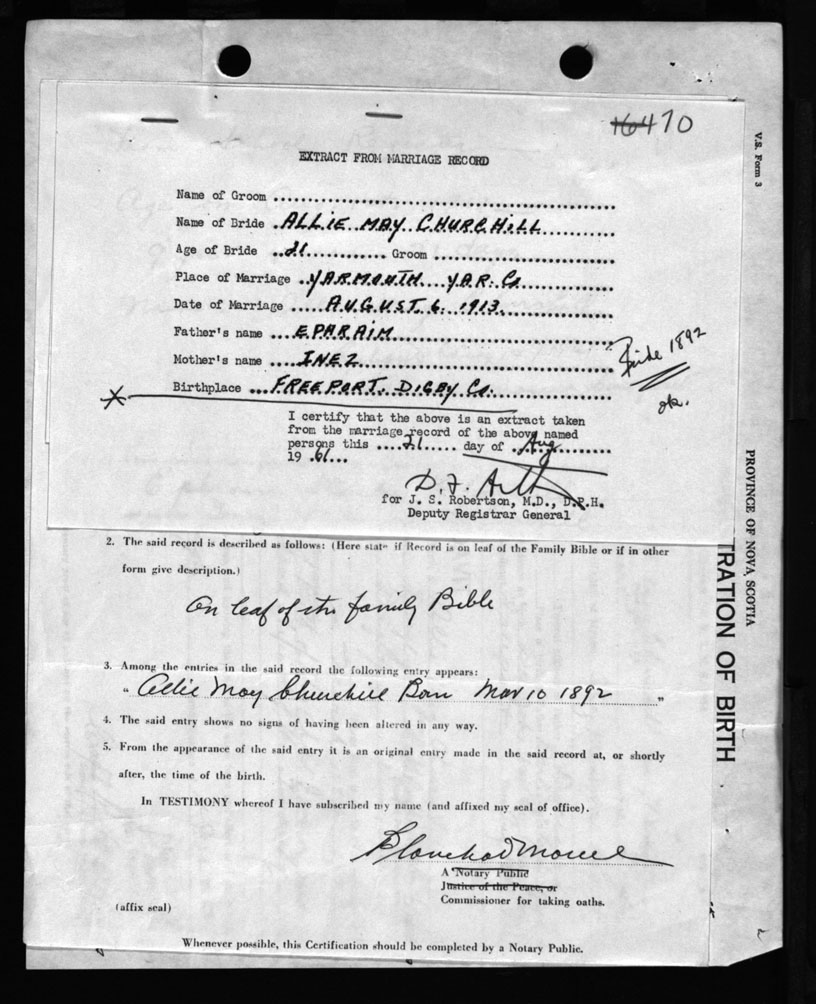 16470
EXTRACT FROM MARRIAGE RECORD
Name of Groom
Name of Bride ALLIE MAY CHURCHILL
Age of Bride 21 Groom
Place of Marriage YARMOUTH YAR. Co
Date of Marriage AUGUST 6 1913
Father's name EPHRAIM
Mother's name INEZ
Birthplace FREEPORT. DIGBY Co.
1892
ok.
I certify that the above is an extract taken
from the marriage record of the above named
persons this 21 day of Aug
19 61
for J. S. Robertson, M.D., D.P.H.
Deputy Registrar General
2. The said record is described as follows: (Here state if Record is on leaf of the Family Bible or if in other
form give description.)
On leaf of the family Bible
3. Among the entries in the said record the following entry appears:
" Allie May Churchill Born Mar 10 1892 "
4. The said entry shows no signs of having been altered in any way.
5. From the appearance of the said entry it is an original entry made in the said record at, or shortly
after, the time of the birth.
In TESTIMONY whereof I have subscribed my name (and affixed my seal of office).
A Notary Public
Justice of the Peace, or
Commissioner for taking oaths.
(affix seal)
Whenever possible, this Certification should be completed by a Notary Public.
V.S. Form 3
PROVINCE OF NOVA SCOTIA
TRATION OF BIRTH